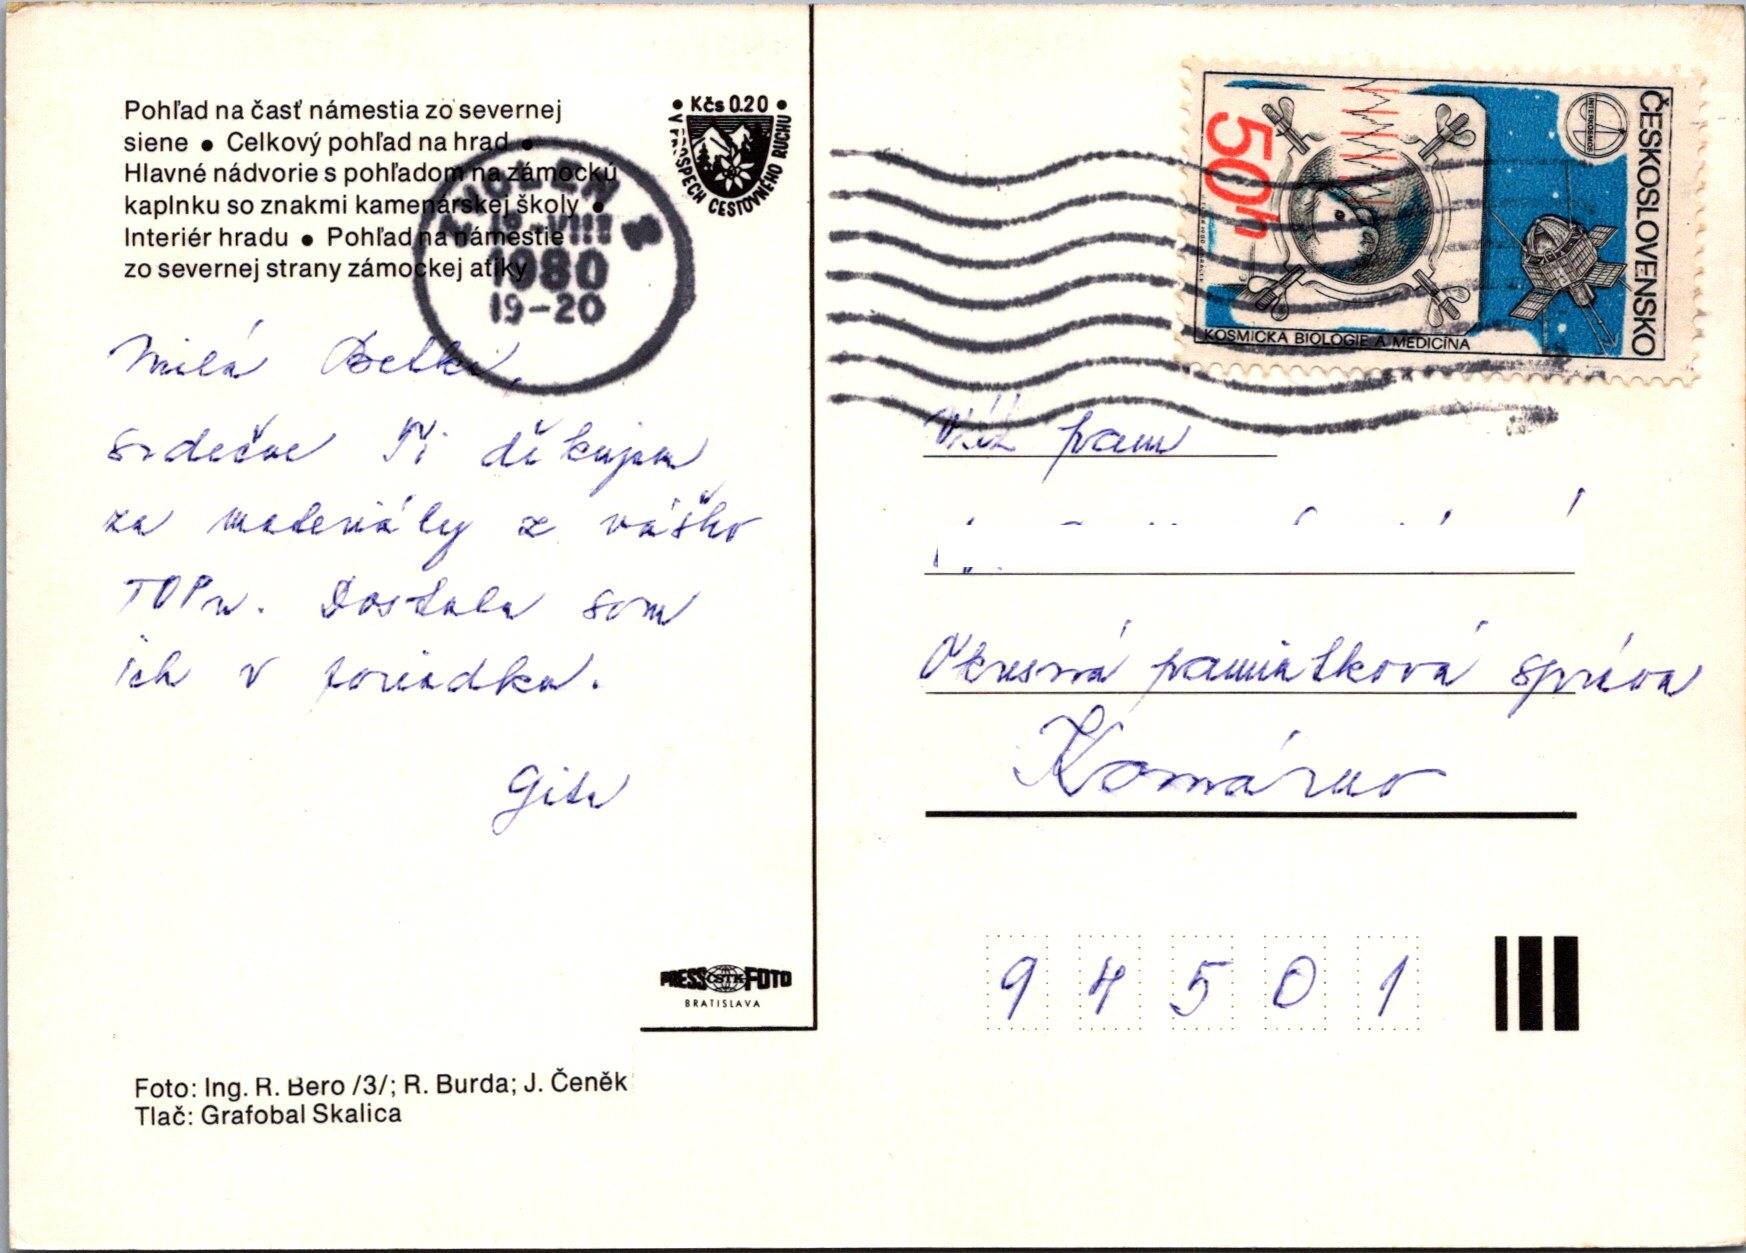 Pohľad na časť námestia zo severnej
siene • Celkový pohľad na hrad •
Hlavné nádvorie s pohľadom na zámockú
kaplnku so znakmi kamenárskej školy •
Interiér hradu • Pohľad na námestie
zo severnej strany zámockej atiky
• Kčs 0.20 •
V PROSPECH CESTOVNÉHO RUCHU
1980
19-20
50h
INTERKOSMOS
ČESKOSLOVENSKO
KOSMICKÁ BIOLOGIE A MEDICÍNA
Milá
srdečne Ti děkujem
za materiály z vášho
TOPu. Dostala som
ich v poriadku.
Gita
Váž pani
Okresná pamiatková správa
Komárno
94501
PRESS ČSTK FOTO
BRATISLAVA
Foto: Ing. R. Bero /3/; R. Burda; J. Čeněk
Tlač: Grafobal Skalica